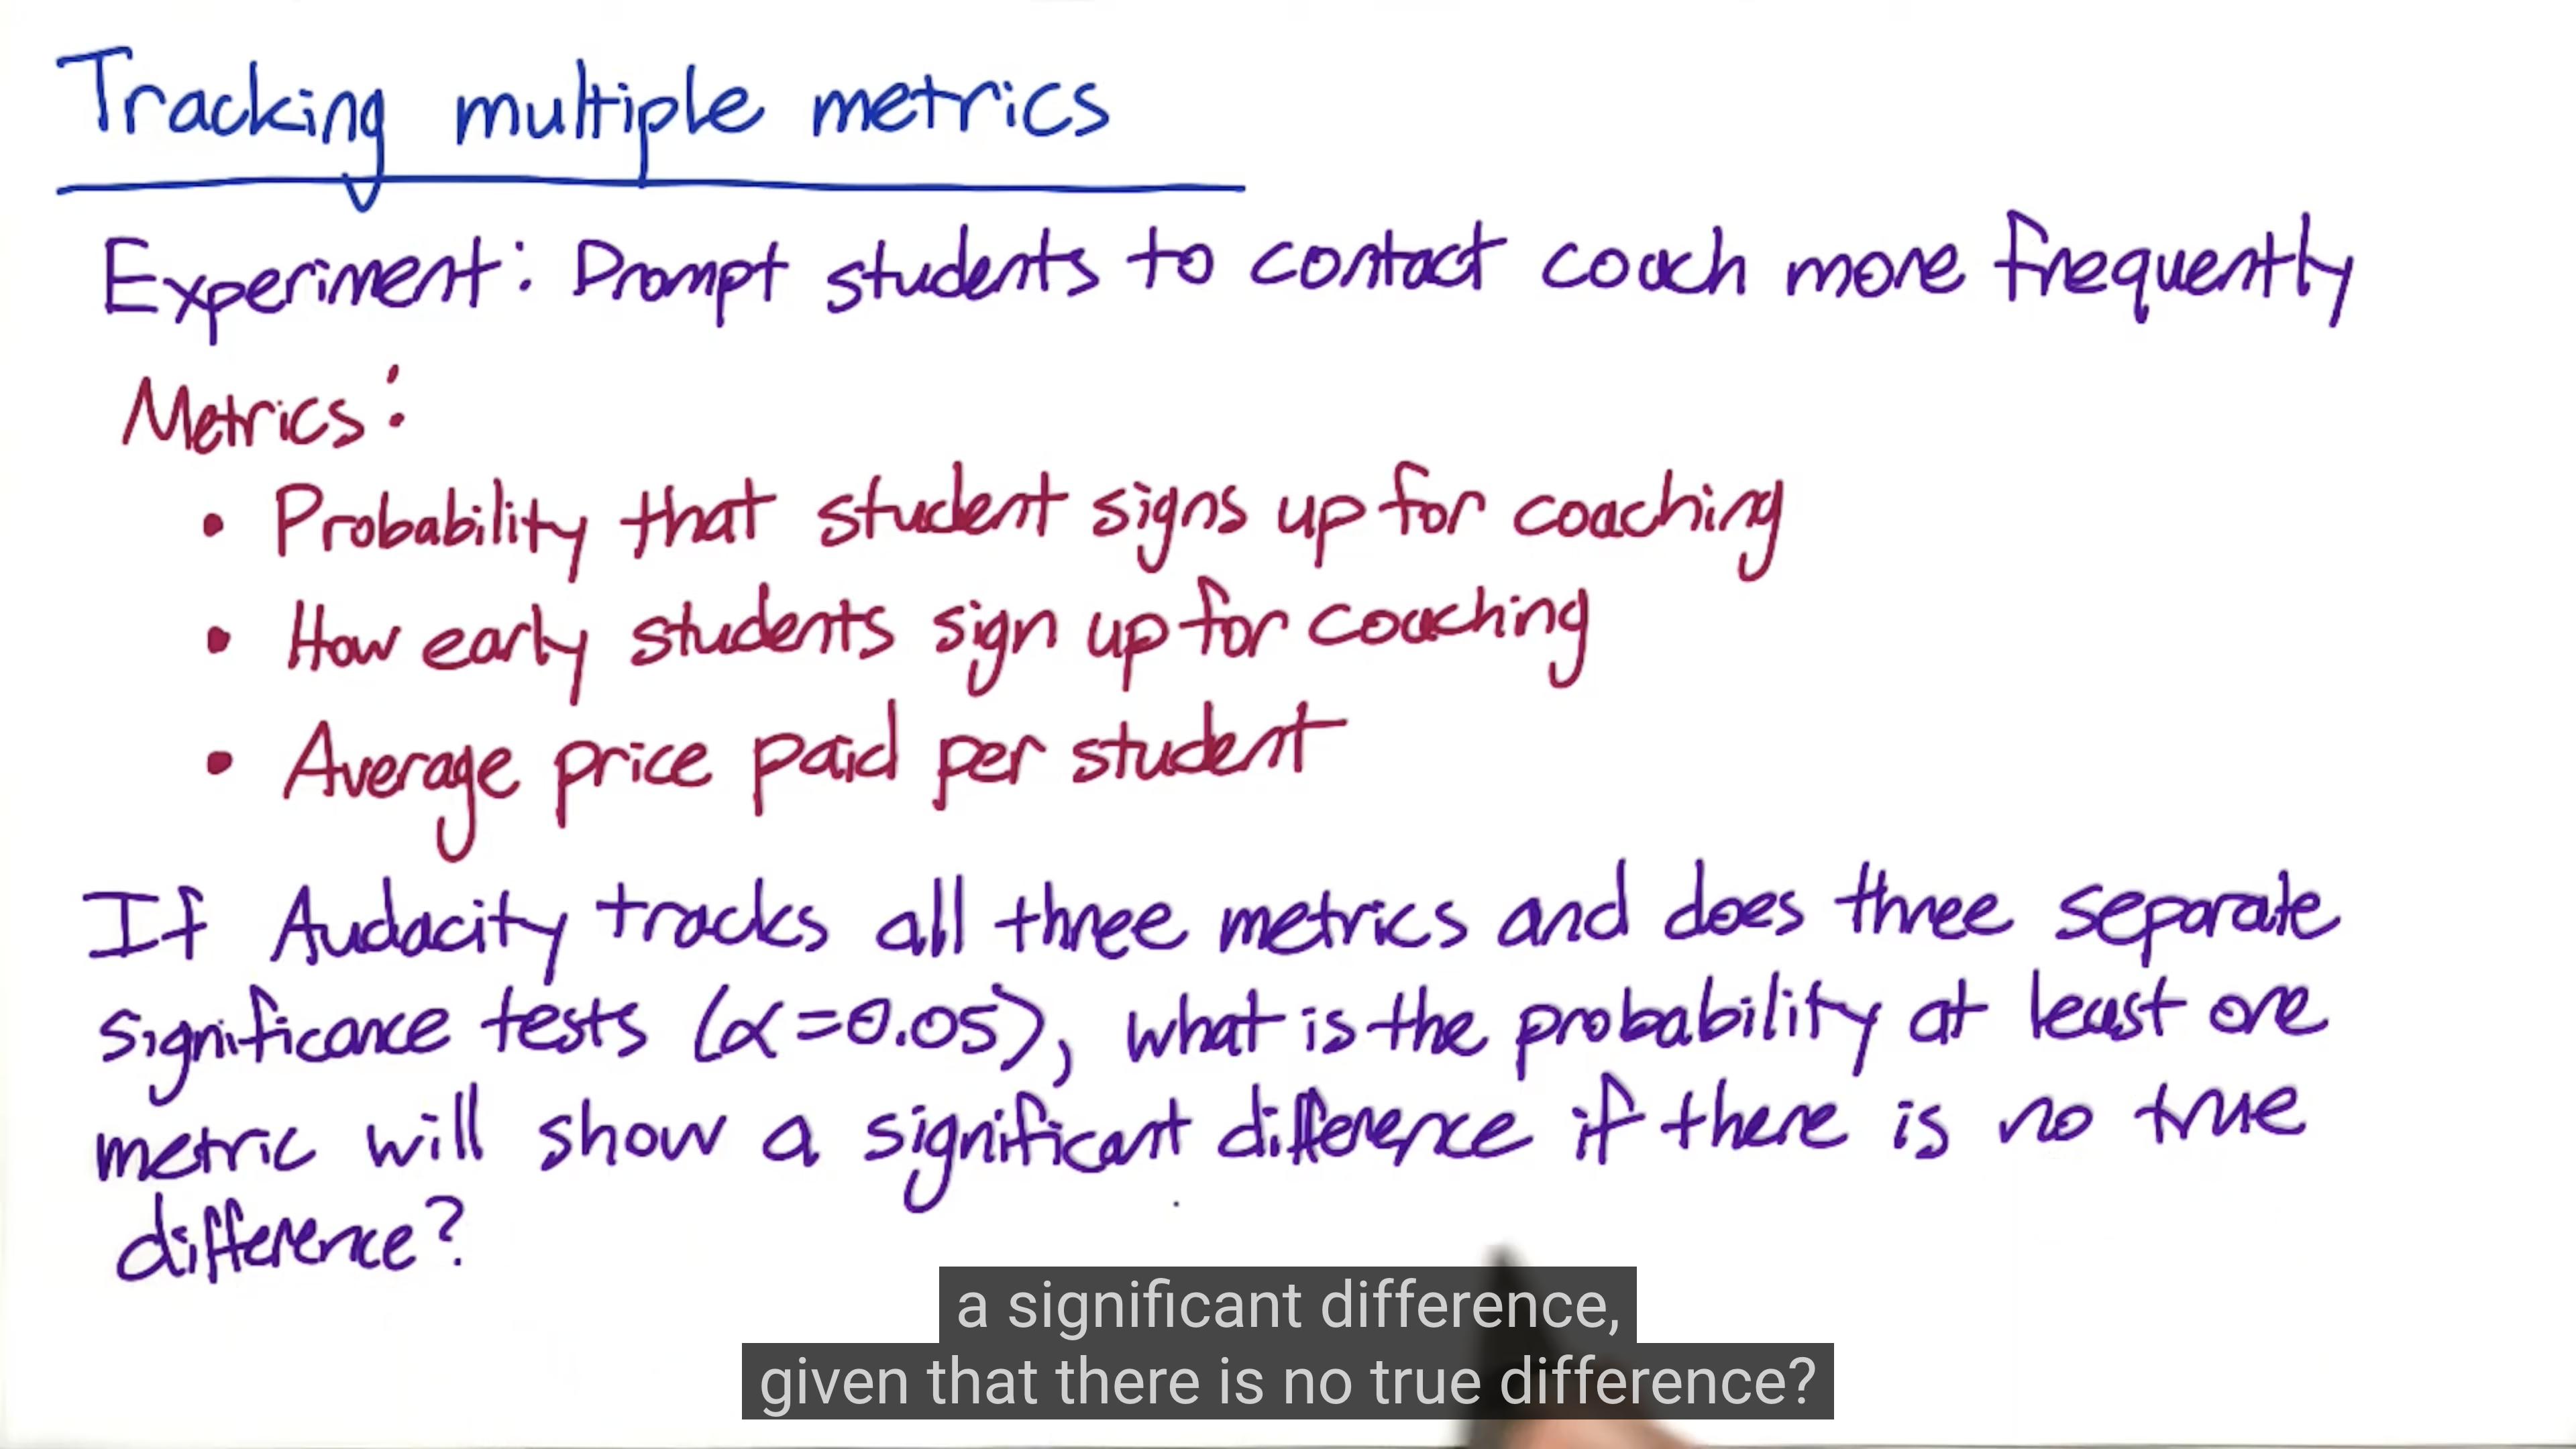 Tracking multiple metrics
Experiment: Prompt students to contact coach more frequently
Metrics:
• Probability that student signs up for coaching
• How early students sign up for coaching
• Average price paid per student
If Audacity tracks all three metrics and does three separate
significance tests (α=0.05), what is the probability at least one
metric will show a significant difference if there is no true
difference?
a significant difference,
given that there is no true difference?